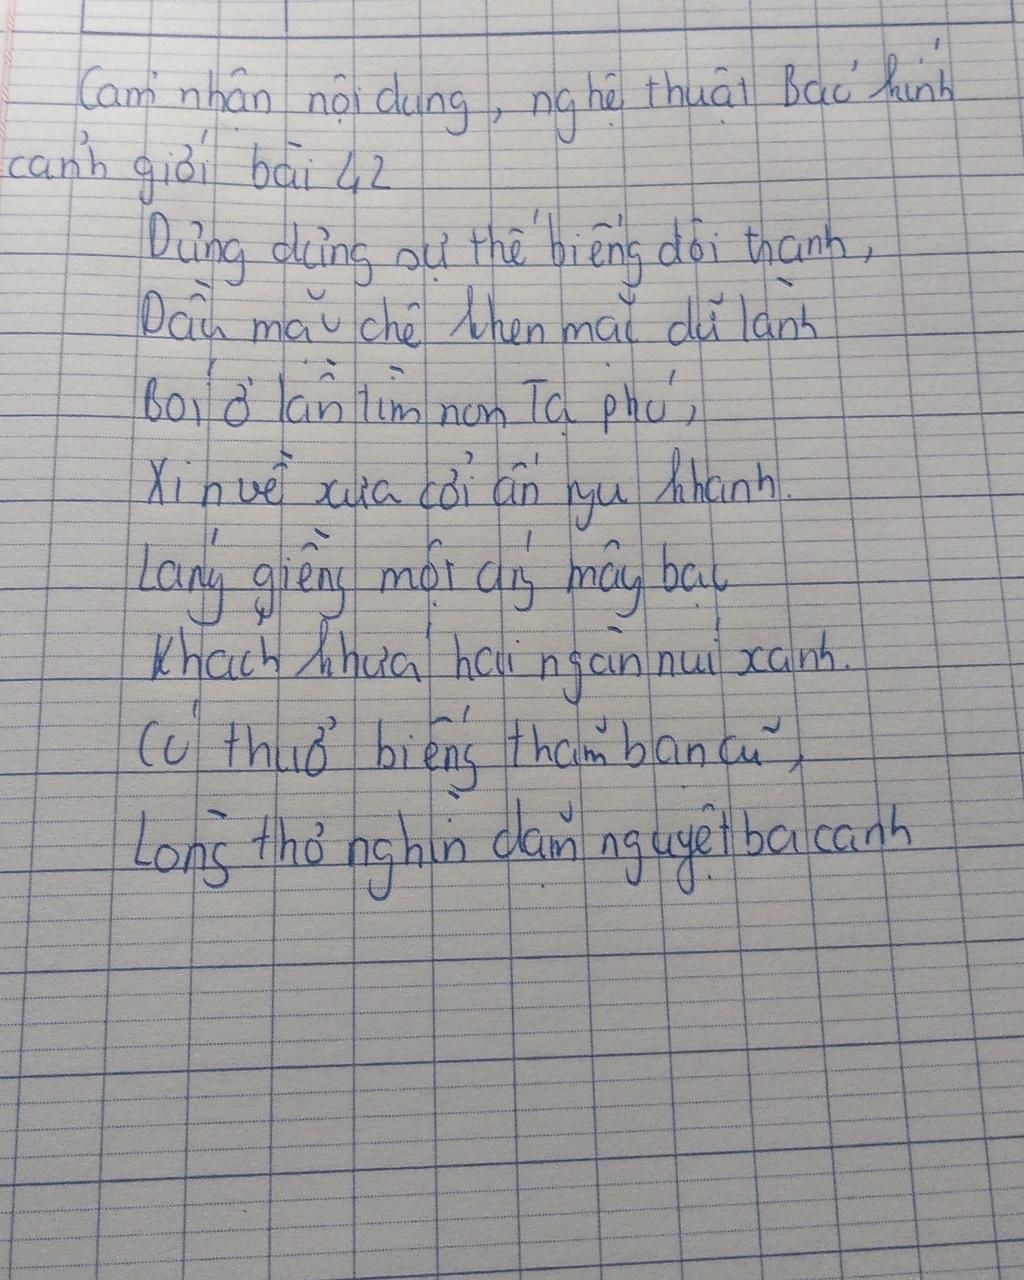 Cảm nhận nội dung, nghệ thuật Bảo kính
cảnh giới bài 42
Dửng dưng sự thế biếng đôi tranh,
Dầu mặc chê khen mặc dữ lành
Bói ở lần tìm non Tạ phó,
Xin về xưa cởi ấn ngu khanh.
Láng giềng một áng mây bạc
Khách khứa hai ngàn núi xanh.
Có thuở biếng thăm bạn cũ,
Lòng thơ nghìn dặm nguyệt ba canh